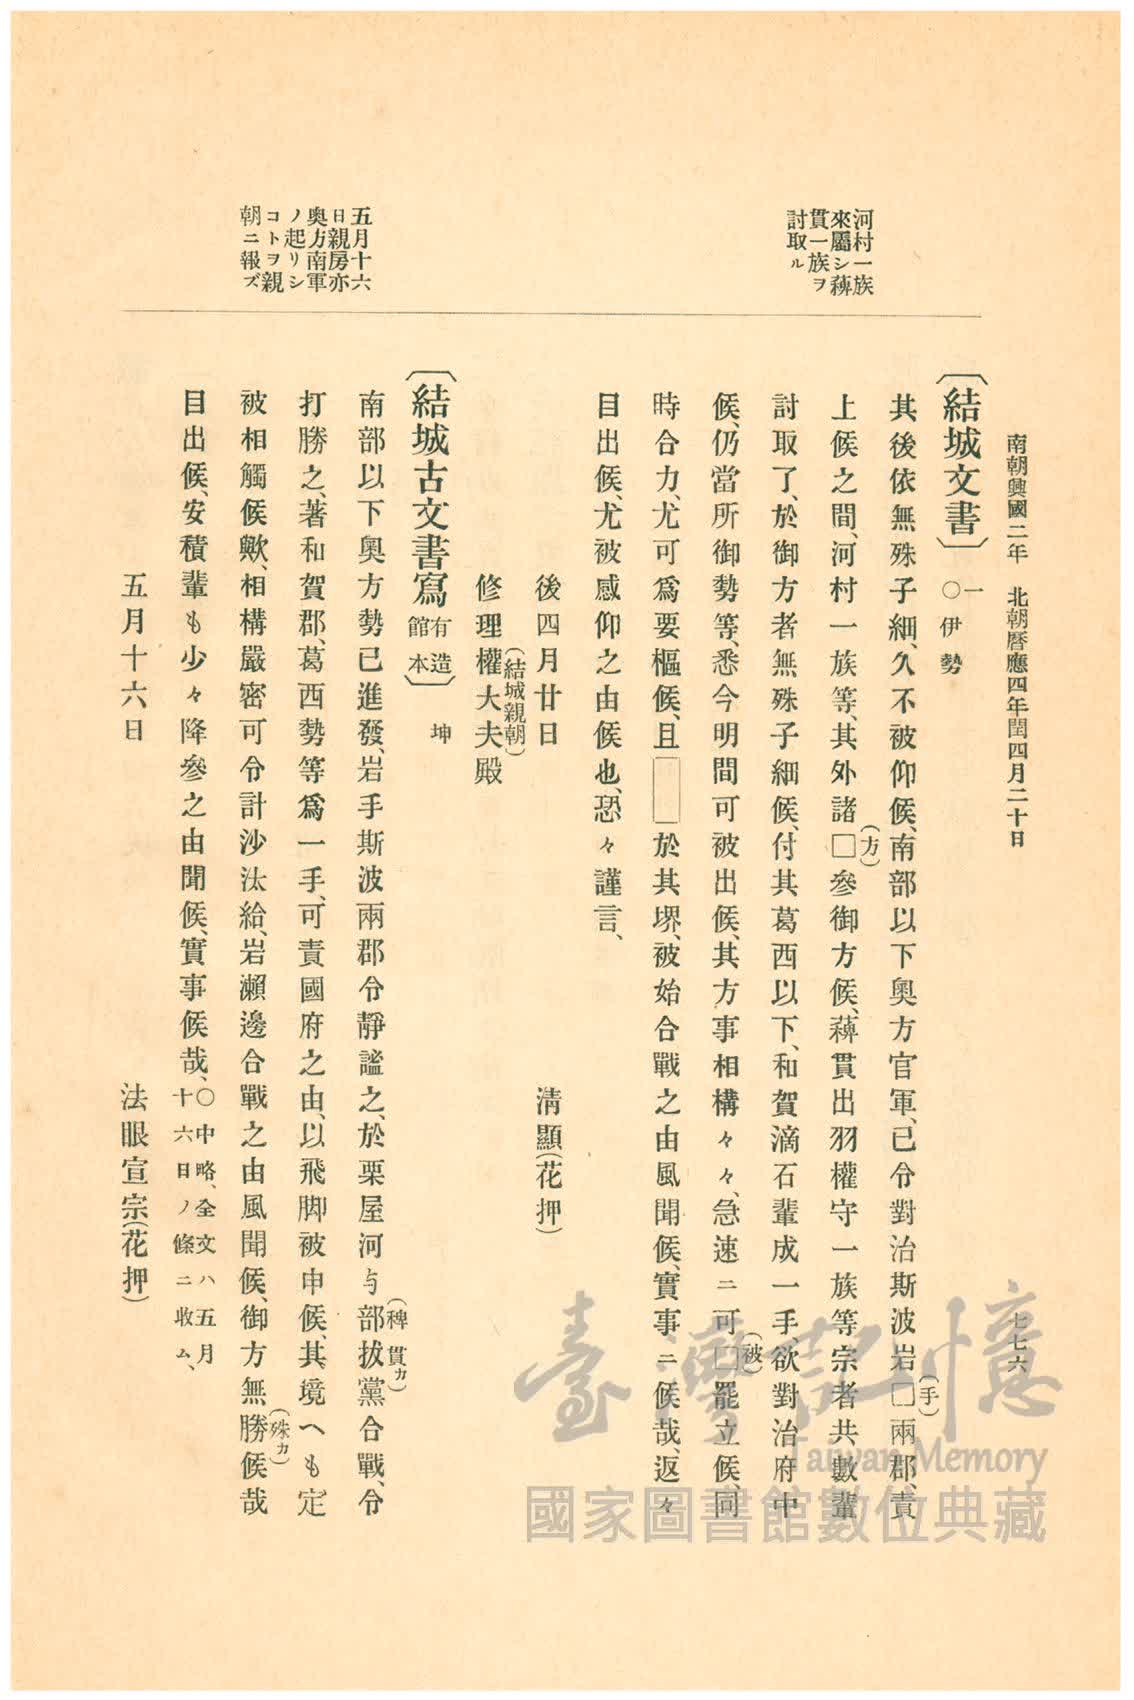 南朝興國二年　北朝曆應四年閏四月二十日
七七六
河村一族
來屬シ薭
貫一族ヲ
討取ル
〔結城文書〕一〇伊勢
其後依無殊子細、久不被仰候、南部以下奧方官軍、已令對治斯波岩□(手)兩郡、責
上候之間、河村一族等、其外諸□(方)參御方候、薭貫出羽權守一族等宗者共數輩
討取了、於御方者無殊子細候、付其葛西以下、和賀滴石輩成一手、欲對治府中
候、仍當所御勢等、悉今明間可被出候、其方事相構々々、急速ニ可□(被)罷立候、同
時合力、尤可爲要樞候、且□於其堺、被始合戰之由風聞候、實事ニ候哉、返々
目出候、尤被感仰之由候也、恐々謹言、
後四月廿日　清顯(花押)
修理權大夫殿(結城親朝)
五月十六
日親房亦
奧方南軍
ノ起リシ
コトヲ親
朝ニ報ズ
〔結城古文書寫有造館本〕坤
南部以下奧方勢已進發、岩手斯波兩郡令靜謐之、於栗屋河与部拔(稗貫カ)黨合戰、令
打勝之、著和賀郡、葛西勢等爲一手、可責國府之由、以飛脚被申候、其境へも定
被相觸候歟、相構嚴密可令計沙汰給、岩瀨邊合戰之由風聞候、御方無勝(殊カ)候哉
目出候、安積輩も少々降參之由聞候、實事候哉、〇中略、全文ハ五月十六日ノ條ニ收ム、
五月十六日　法眼宣宗(花押)
臺灣記憶
Taiwan Memory
國家圖書館數位典藏